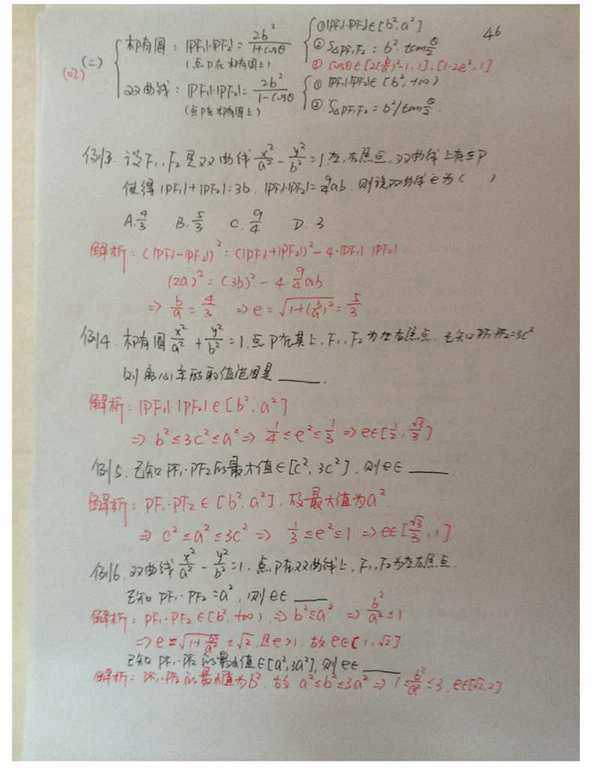 46
(二) 椭圆:|PF₁|·|PF₂|= 2b²/(1+cosθ) ①|PF₁|·|PF₂|∈[b²,a²]
(点P在椭圆上) ②S△PF₁F₂=b²·tan θ/2
双曲线:|PF₁|·|PF₂|= 2b²/(1-cosθ) ①|PF₁|·|PF₂|∈[b²,+∞)
(点P在椭圆上) ②S△PF₁F₂=b²/tan θ/2
例3. 设F₁,F₂是双曲线 x²/a² - y²/b² =1左,右焦点,双曲线上存在P
使得|PF₁|+|PF₂|=3b,|PF₁|·|PF₂|= 9/4 ab,则该双曲线e为( )
A. 4/3 B. 5/3 C. 9/4 D. 3
解析:(|PF₁|-|PF₂|)²=(|PF₁|+|PF₂|)²-4·|PF₁|·|PF₂|
(2a)²=(3b)²-4·9/4 ab
⇒ b/a = 4/3 ⇒ e=√(1+(b/a)²)= 5/3
例4. 椭圆 x²/a² + y²/b² =1,点P在其上,F₁,F₂为左右焦点,已知PF₁·PF₂=3c²
则离心率e的取值范围是____.
解析:|PF₁|·|PF₂|∈[b²,a²]
⇒ b²≤3c²≤a² ⇒ 1/4≤e²≤1/3 ⇒e∈[1/2,√3/3]
例5. 已知PF₁·PF₂的最大值∈[c²,3c²],则e∈____.
解析:PF₁·PF₂∈[b²,a²],故最大值为a²
⇒ c²≤a²≤3c² ⇒ 1/3≤e²≤1 ⇒e∈[√3/3,1]
例6. 双曲线 x²/a² - y²/b² =1,点P在双曲线上,F₁,F₂为左右焦点
已知PF₁·PF₂=a²,则e∈____
解析:PF₁·PF₂∈[b²,+∞) ⇒b²≤a² ⇒ b²/a²≤1
⇒e=√(1+b²/a²)≤√2,且e>1,故e∈(1,√2]
已知PF₁·PF₂的最小值∈[a²,3a²],则e∈____
解析:PF₁·PF₂的最小值为b²,故a²≤b²≤3a²⇒1≤b²/a²≤3,e∈[√2,2]